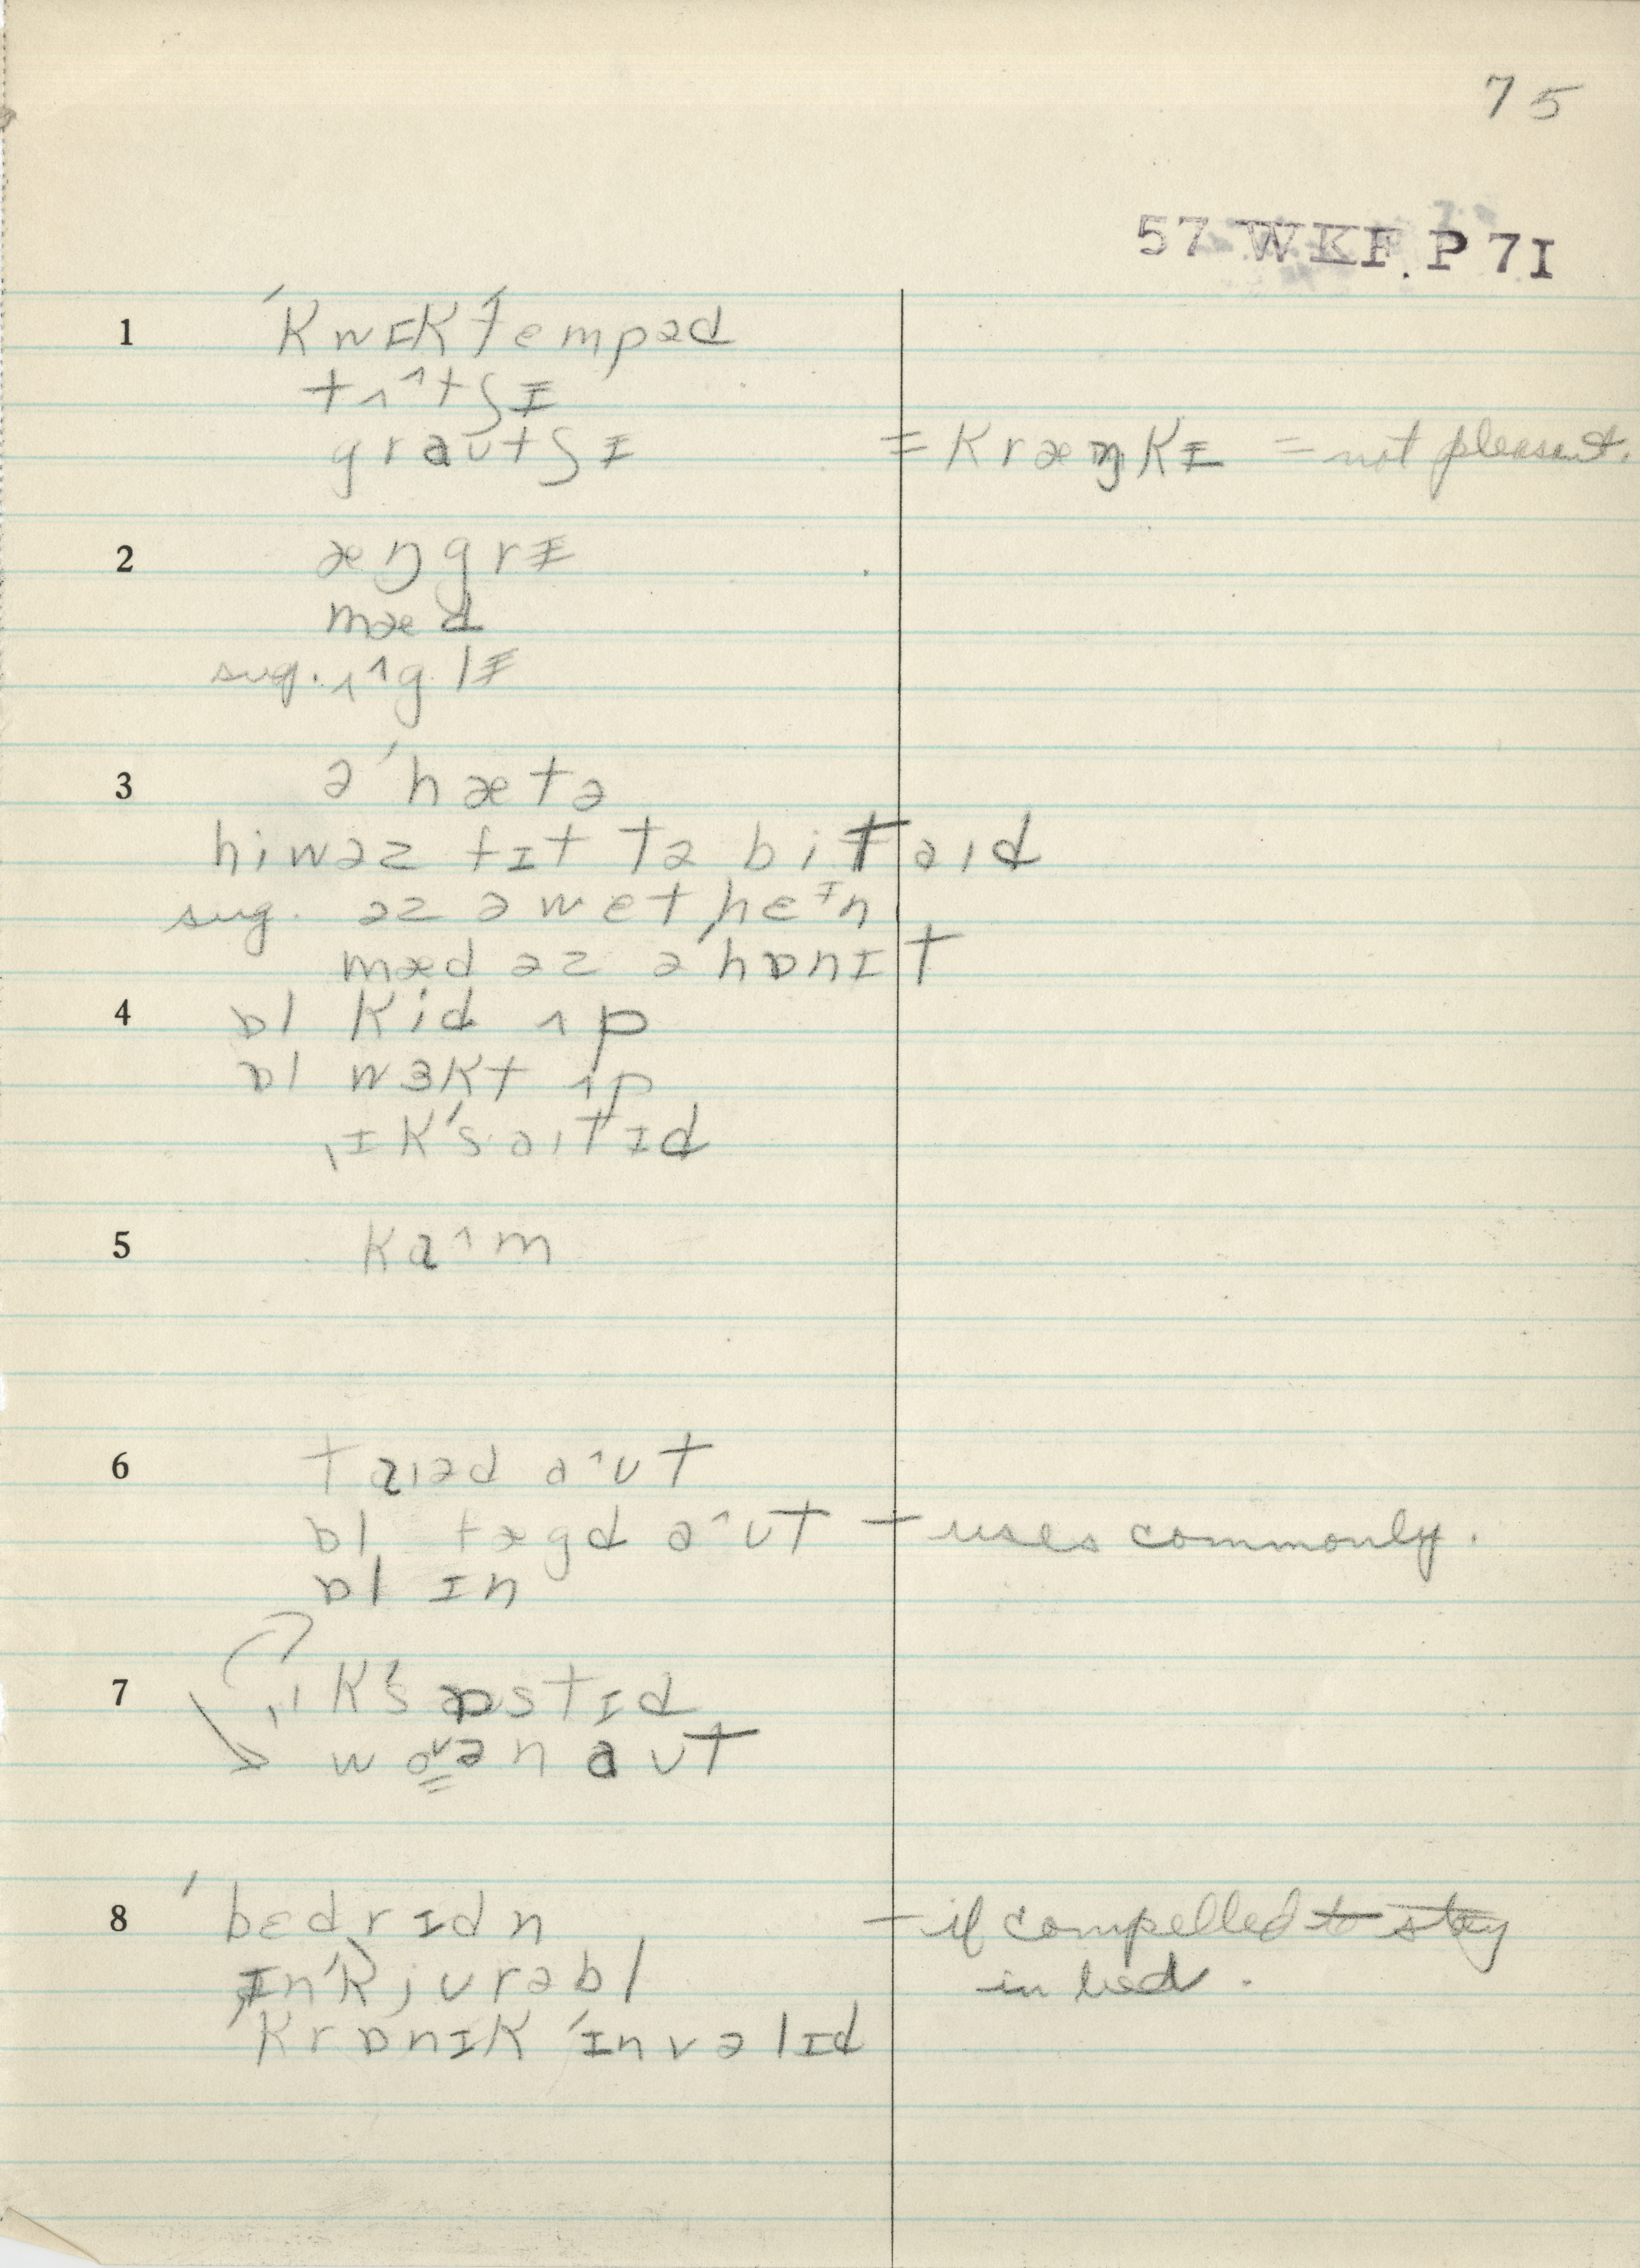 75
57 WKF P 7I
1 ˈkwɪkˈtempəd
tʌ^tʃɪ
graʊtʃɪ = kræŋkɪ = not pleasant.
2 æŋgrɪ
mæd
sug. ʌ^glɪ
3 əˈhætə
hiwəz fɪt tə bi taɪd
sug. əz ə wet hɛᶦn
mæd əz əˈhɒnɪt
4 ɒl kid ʌp
ɒl wɜkt ʌp
ˌɪkˈsaɪtɪd
5 ka^m
6 taɪəd a^ʊt
ɒl fægd a^ʊt – uses commonly.
ɒl ɪn
7 ˌɪkˈsɒstɪd
woᵛən aʊt
8 ˈbɛdrɪdn – if compelled to stay
ɪnˈkjʊrəbl in bed.
ˈkrɒnɪk ˈɪnvəlɪd